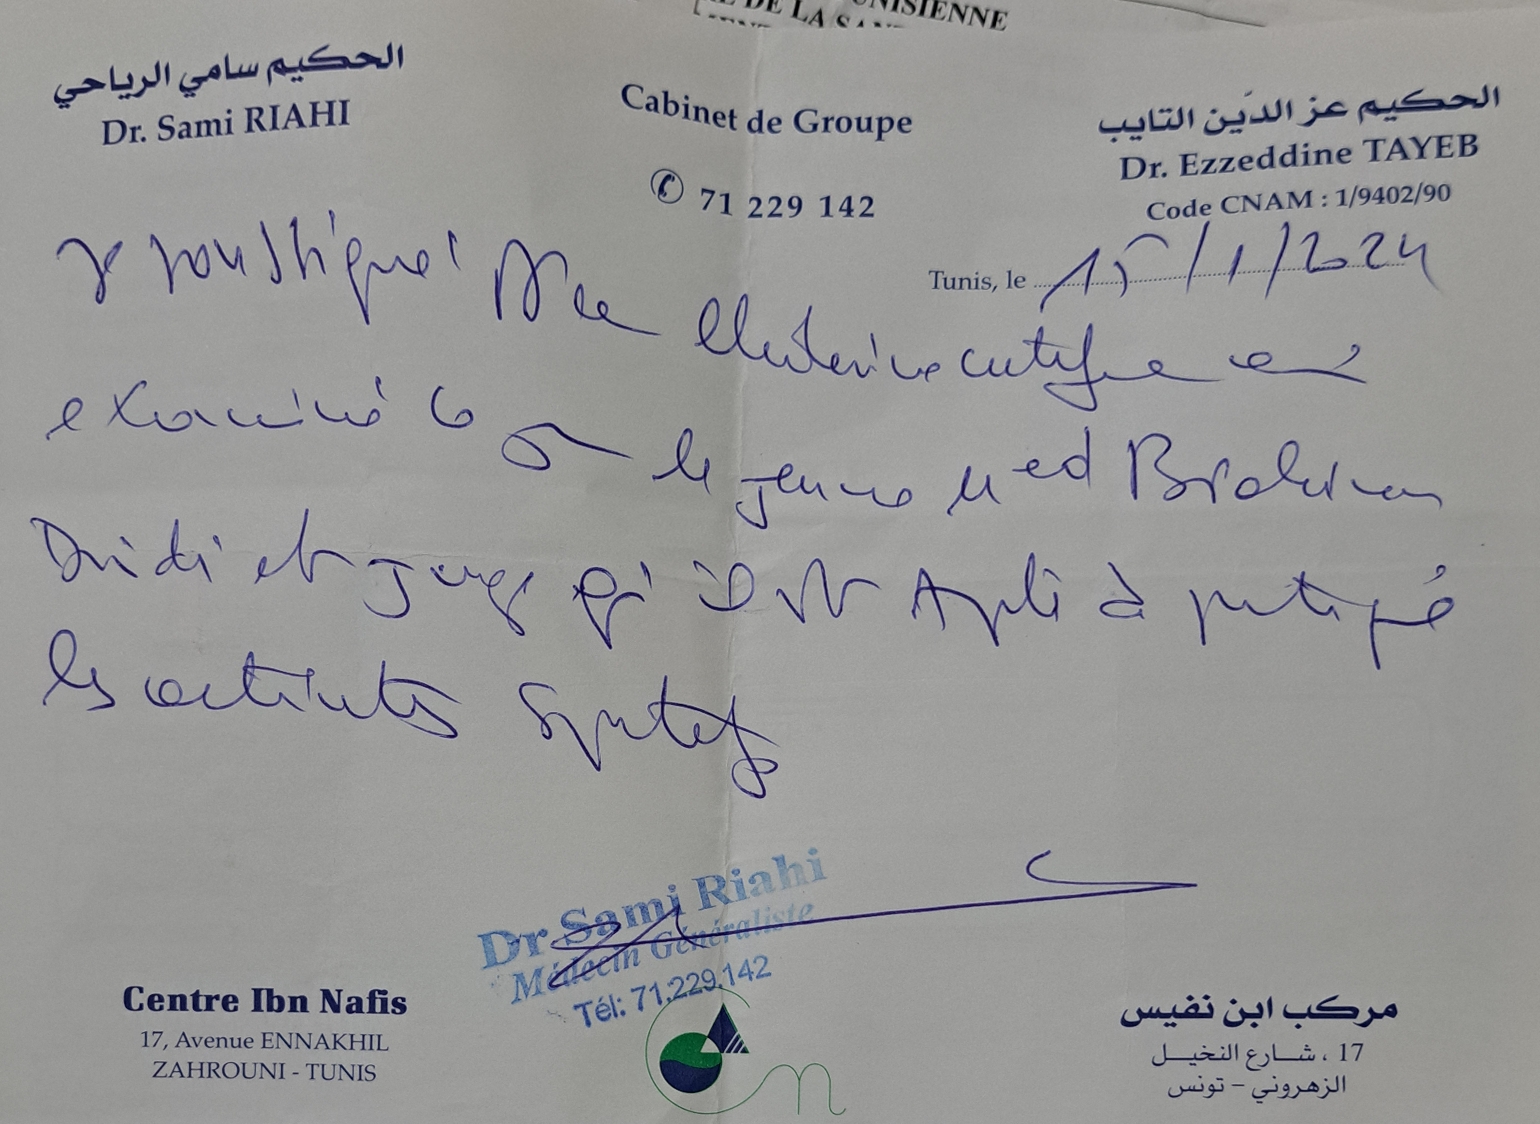 TUNISIENNE
DE LA SAN
الحكيم سامي الرياحي
Dr. Sami RIAHI
Cabinet de Groupe
✆ 71 229 142
الحكيم عز الدّين التايب
Dr. Ezzeddine TAYEB
Code CNAM : 1/9402/90
Tunis, le 15/1/2024
Je soussigné certifie
examiné le jeune Med Brahim
Dridi et juge qu'il est Apte à pratiqué
les activités sportifs
Dr Sami Riahi
Médecin Généraliste
Tél: 71.229.142
Centre Ibn Nafis
17, Avenue ENNAKHIL
ZAHROUNI - TUNIS
مركب ابن نفيس
17 ، شارع النخيل
الزهروني - تونس